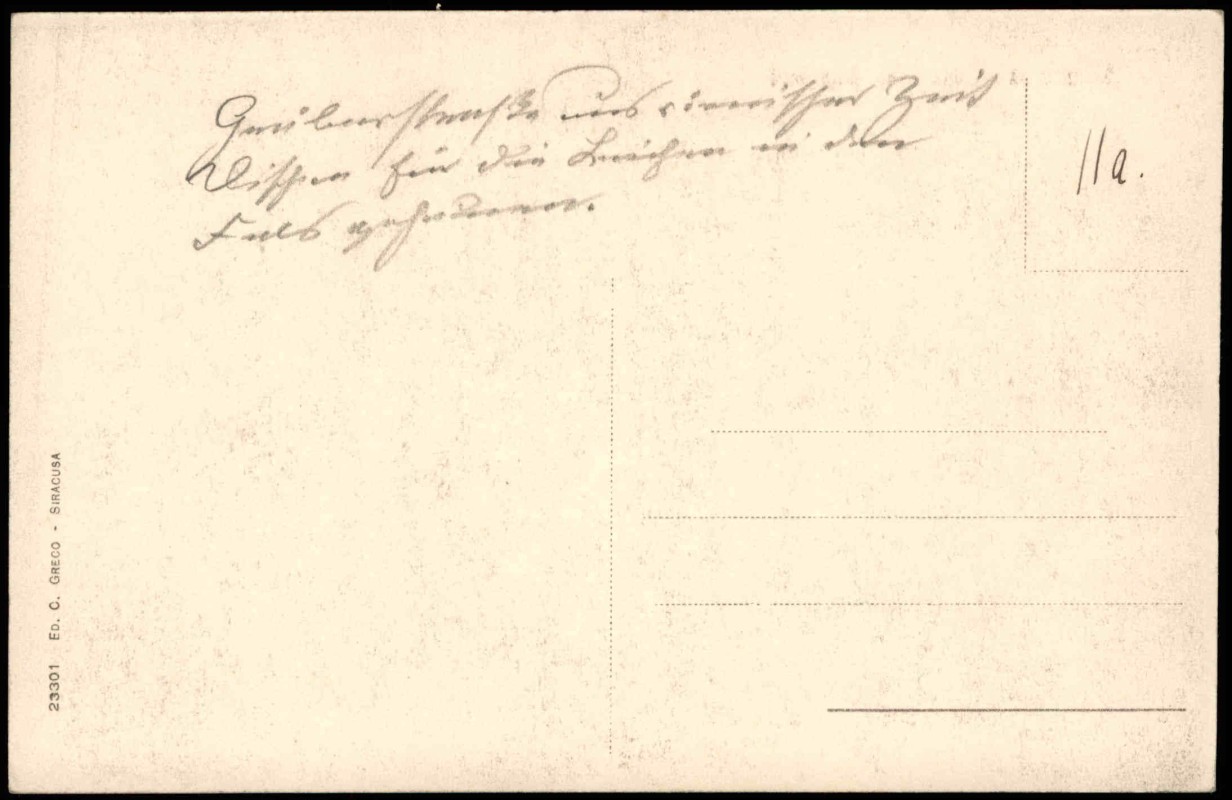 Gräberstraße aus römischer Zeit
Nischen für die Leichen in den
Fels gehauen.
11a.
23301 ED. C. GRECO - SIRACUSA